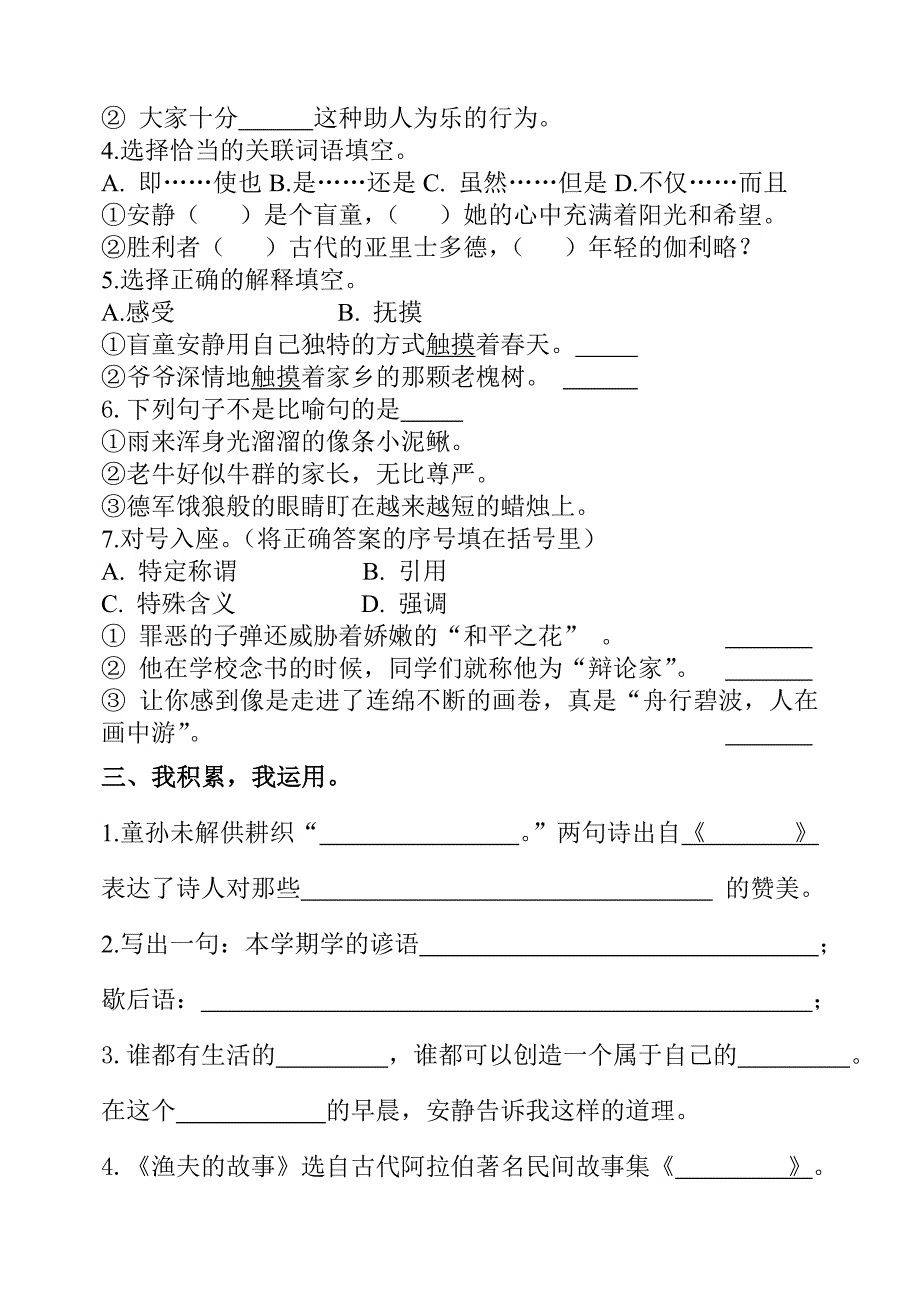 ② 大家十分______这种助人为乐的行为。
4.选择恰当的关联词语填空。
A. 即……使也 B.是……还是 C. 虽然……但是 D.不仅……而且
①安静（   ）是个盲童，（   ）她的心中充满着阳光和希望。
②胜利者（   ）古代的亚里士多德，（   ）年轻的伽利略？
5.选择正确的解释填空。
A.感受 B. 抚摸
①盲童安静用自己独特的方式触摸着春天。_____
②爷爷深情地触摸着家乡的那颗老槐树。______
6. 下列句子不是比喻句的是_____
①雨来浑身光溜溜的像条小泥鳅。
②老牛好似牛群的家长，无比尊严。
③德军饿狼般的眼睛盯在越来越短的蜡烛上。
7.对号入座。（将正确答案的序号填在括号里）
A. 特定称谓 B. 引用
C. 特殊含义 D. 强调
① 罪恶的子弹还威胁着娇嫩的“和平之花” 。_______
② 他在学校念书的时候，同学们就称他为“辩论家”。_______
③ 让你感到像是走进了连绵不断的画卷，真是“舟行碧波，人在
画中游”。_______
三、我积累，我运用。
1.童孙未解供耕织“________________。”两句诗出自《_______》
表达了诗人对那些_________________________________ 的赞美。
2.写出一句：本学期学的谚语________________________________；
歇后语：_________________________________________________；
3. 谁都有生活的_________，谁都可以创造一个属于自己的_________。
在这个____________的早晨，安静告诉我这样的道理。
4. 《渔夫的故事》选自古代阿拉伯著名民间故事集《_________》。